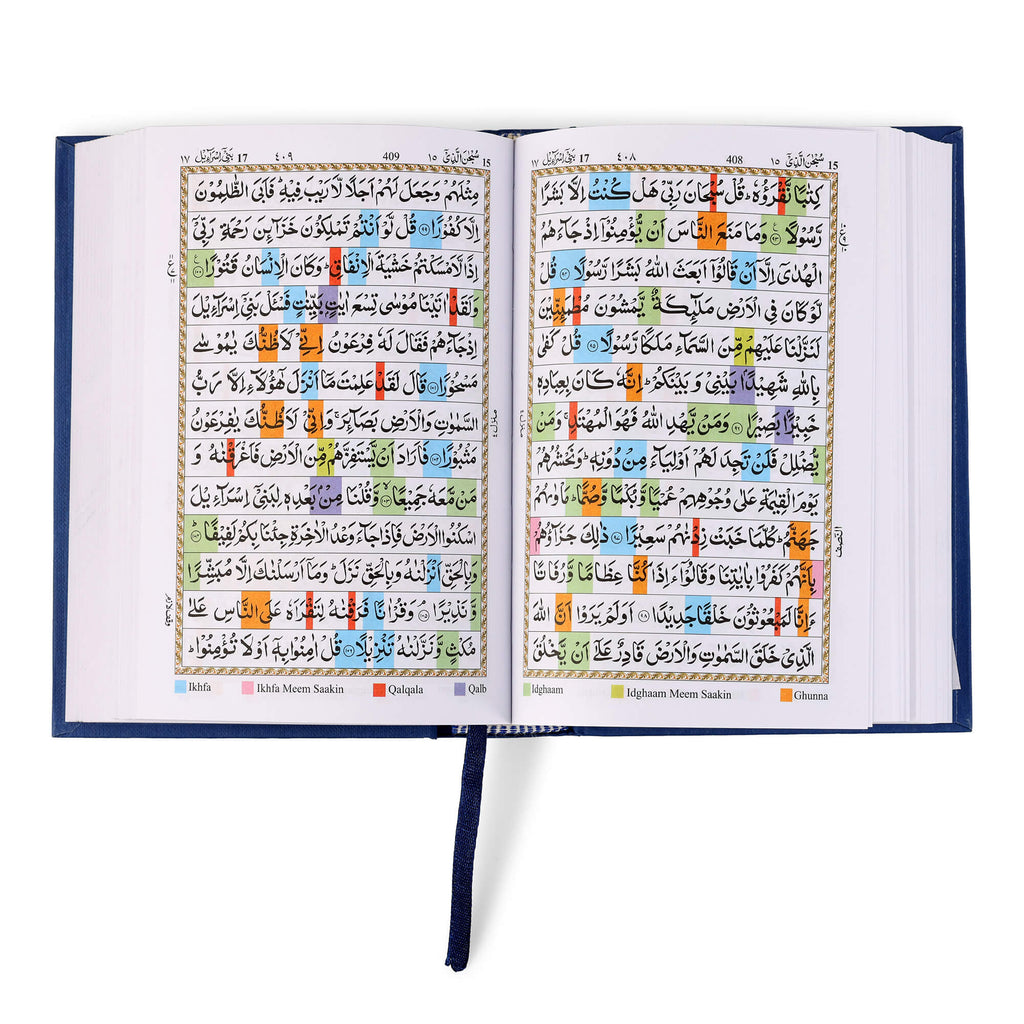 15 سُبْحٰنَ الَّذِيْٓ ١٥ 408 ٤٠٨ 17 بَنِيْٓ اِسْرَآءِيْل ١٧
كِتٰبًا نَّقْرَؤُهٗ ؕ قُلْ سُبْحَانَ رَبِّيْ هَلْ كُنْتُ اِلَّا بَشَرًا
رَّسُوْلًا ۝٩٣ وَمَا مَنَعَ النَّاسَ اَنْ يُّؤْمِنُوْٓا اِذْ جَآءَهُمُ
الْهُدٰٓى اِلَّآ اَنْ قَالُوْٓا اَبَعَثَ اللّٰهُ بَشَرًا رَّسُوْلًا ۝٩٤ قُلْ
لَّوْ كَانَ فِي الْاَرْضِ مَلٰٓئِكَةٌ يَّمْشُوْنَ مُطْمَئِنِّيْنَ
لَنَزَّلْنَا عَلَيْهِمْ مِّنَ السَّمَآءِ مَلَكًا رَّسُوْلًا ۝٩٥ قُلْ كَفٰى
بِاللّٰهِ شَهِيْدًۢا بَيْنِيْ وَ بَيْنَكُمْ ؕ اِنَّهٗ كَانَ بِعِبَادِهٖ
خَبِيْرًۢا بَصِيْرًا ۝٩٦ وَمَنْ يَّهْدِ اللّٰهُ فَهُوَ الْمُهْتَدِ ۚ وَمَنْ
يُّضْلِلْ فَلَنْ تَجِدَ لَهُمْ اَوْلِيَآءَ مِنْ دُوْنِهٖ ؕ وَنَحْشُرُهُمْ
يَوْمَ الْقِيٰمَةِ عَلٰى وُجُوْهِهِمْ عُمْيًا وَّبُكْمًا وَّصُمًّا ؕ مَاْوٰىهُمْ
جَهَنَّمُ ؕ كُلَّمَا خَبَتْ زِدْنٰهُمْ سَعِيْرًا ۝٩٧ ذٰلِكَ جَزَآؤُهُمْ
بِاَنَّهُمْ كَفَرُوْا بِاٰيٰتِنَا وَقَالُوْٓا ءَاِذَا كُنَّا عِظَامًا وَّرُفَاتًا
ءَاِنَّا لَمَبْعُوْثُوْنَ خَلْقًا جَدِيْدًا ۝٩٨ اَوَلَمْ يَرَوْا اَنَّ اللّٰهَ
الَّذِيْ خَلَقَ السَّمٰوٰتِ وَالْاَرْضَ قَادِرٌ عَلٰٓى اَنْ يَّخْلُقَ
النصف
Idghaam Idghaam Meem Saakin Ghunna
15 سُبْحٰنَ الَّذِيْٓ ١٥ 409 ٤٠٩ 17 بَنِيْٓ اِسْرَآءِيْل ١٧
مِثْلَهُمْ وَجَعَلَ لَهُمْ اَجَلًا لَّا رَيْبَ فِيْهِ ؕ فَاَبَى الظّٰلِمُوْنَ
اِلَّا كُفُوْرًا ۝٩٩ قُلْ لَّوْ اَنْتُمْ تَمْلِكُوْنَ خَزَآئِنَ رَحْمَةِ رَبِّيْٓ
اِذًا لَّاَمْسَكْتُمْ خَشْيَةَ الْاِنْفَاقِ ؕ وَكَانَ الْاِنْسَانُ قَتُوْرًا ۝١٠٠
وَلَقَدْ اٰتَيْنَا مُوْسٰى تِسْعَ اٰيٰتٍۢ بَيِّنٰتٍ فَسْئَلْ بَنِيْٓ اِسْرَآءِيْلَ
اِذْ جَآءَهُمْ فَقَالَ لَهٗ فِرْعَوْنُ اِنِّيْ لَاَظُنُّكَ يٰمُوْسٰى
مَسْحُوْرًا ۝١٠١ قَالَ لَقَدْ عَلِمْتَ مَآ اَنْزَلَ هٰٓؤُلَآءِ اِلَّا رَبُّ
السَّمٰوٰتِ وَالْاَرْضِ بَصَآئِرَ ۚ وَاِنِّيْ لَاَظُنُّكَ يٰفِرْعَوْنُ
مَثْبُوْرًا ۝١٠٢ فَاَرَادَ اَنْ يَّسْتَفِزَّهُمْ مِّنَ الْاَرْضِ فَاَغْرَقْنٰهُ وَ
مَنْ مَّعَهٗ جَمِيْعًا ۝١٠٣ وَّقُلْنَا مِنْۢ بَعْدِهٖ لِبَنِيْٓ اِسْرَآءِيْلَ
اسْكُنُوا الْاَرْضَ فَاِذَا جَآءَ وَعْدُ الْاٰخِرَةِ جِئْنَا بِكُمْ لَفِيْفًا ؕ ۝١٠٤
وَبِالْحَقِّ اَنْزَلْنٰهُ وَبِالْحَقِّ نَزَلَ ؕ وَمَآ اَرْسَلْنٰكَ اِلَّا مُبَشِّرًا
وَّنَذِيْرًا ۝١٠٥ وَقُرْاٰنًا فَرَقْنٰهُ لِتَقْرَاَهٗ عَلَى النَّاسِ عَلٰى
مُكْثٍ وَّنَزَّلْنٰهُ تَنْزِيْلًا ۝١٠٦ قُلْ اٰمِنُوْا بِهٖٓ اَوْ لَا تُؤْمِنُوْا ؕ
Ikhfa Ikhfa Meem Saakin Qalqala Qalb